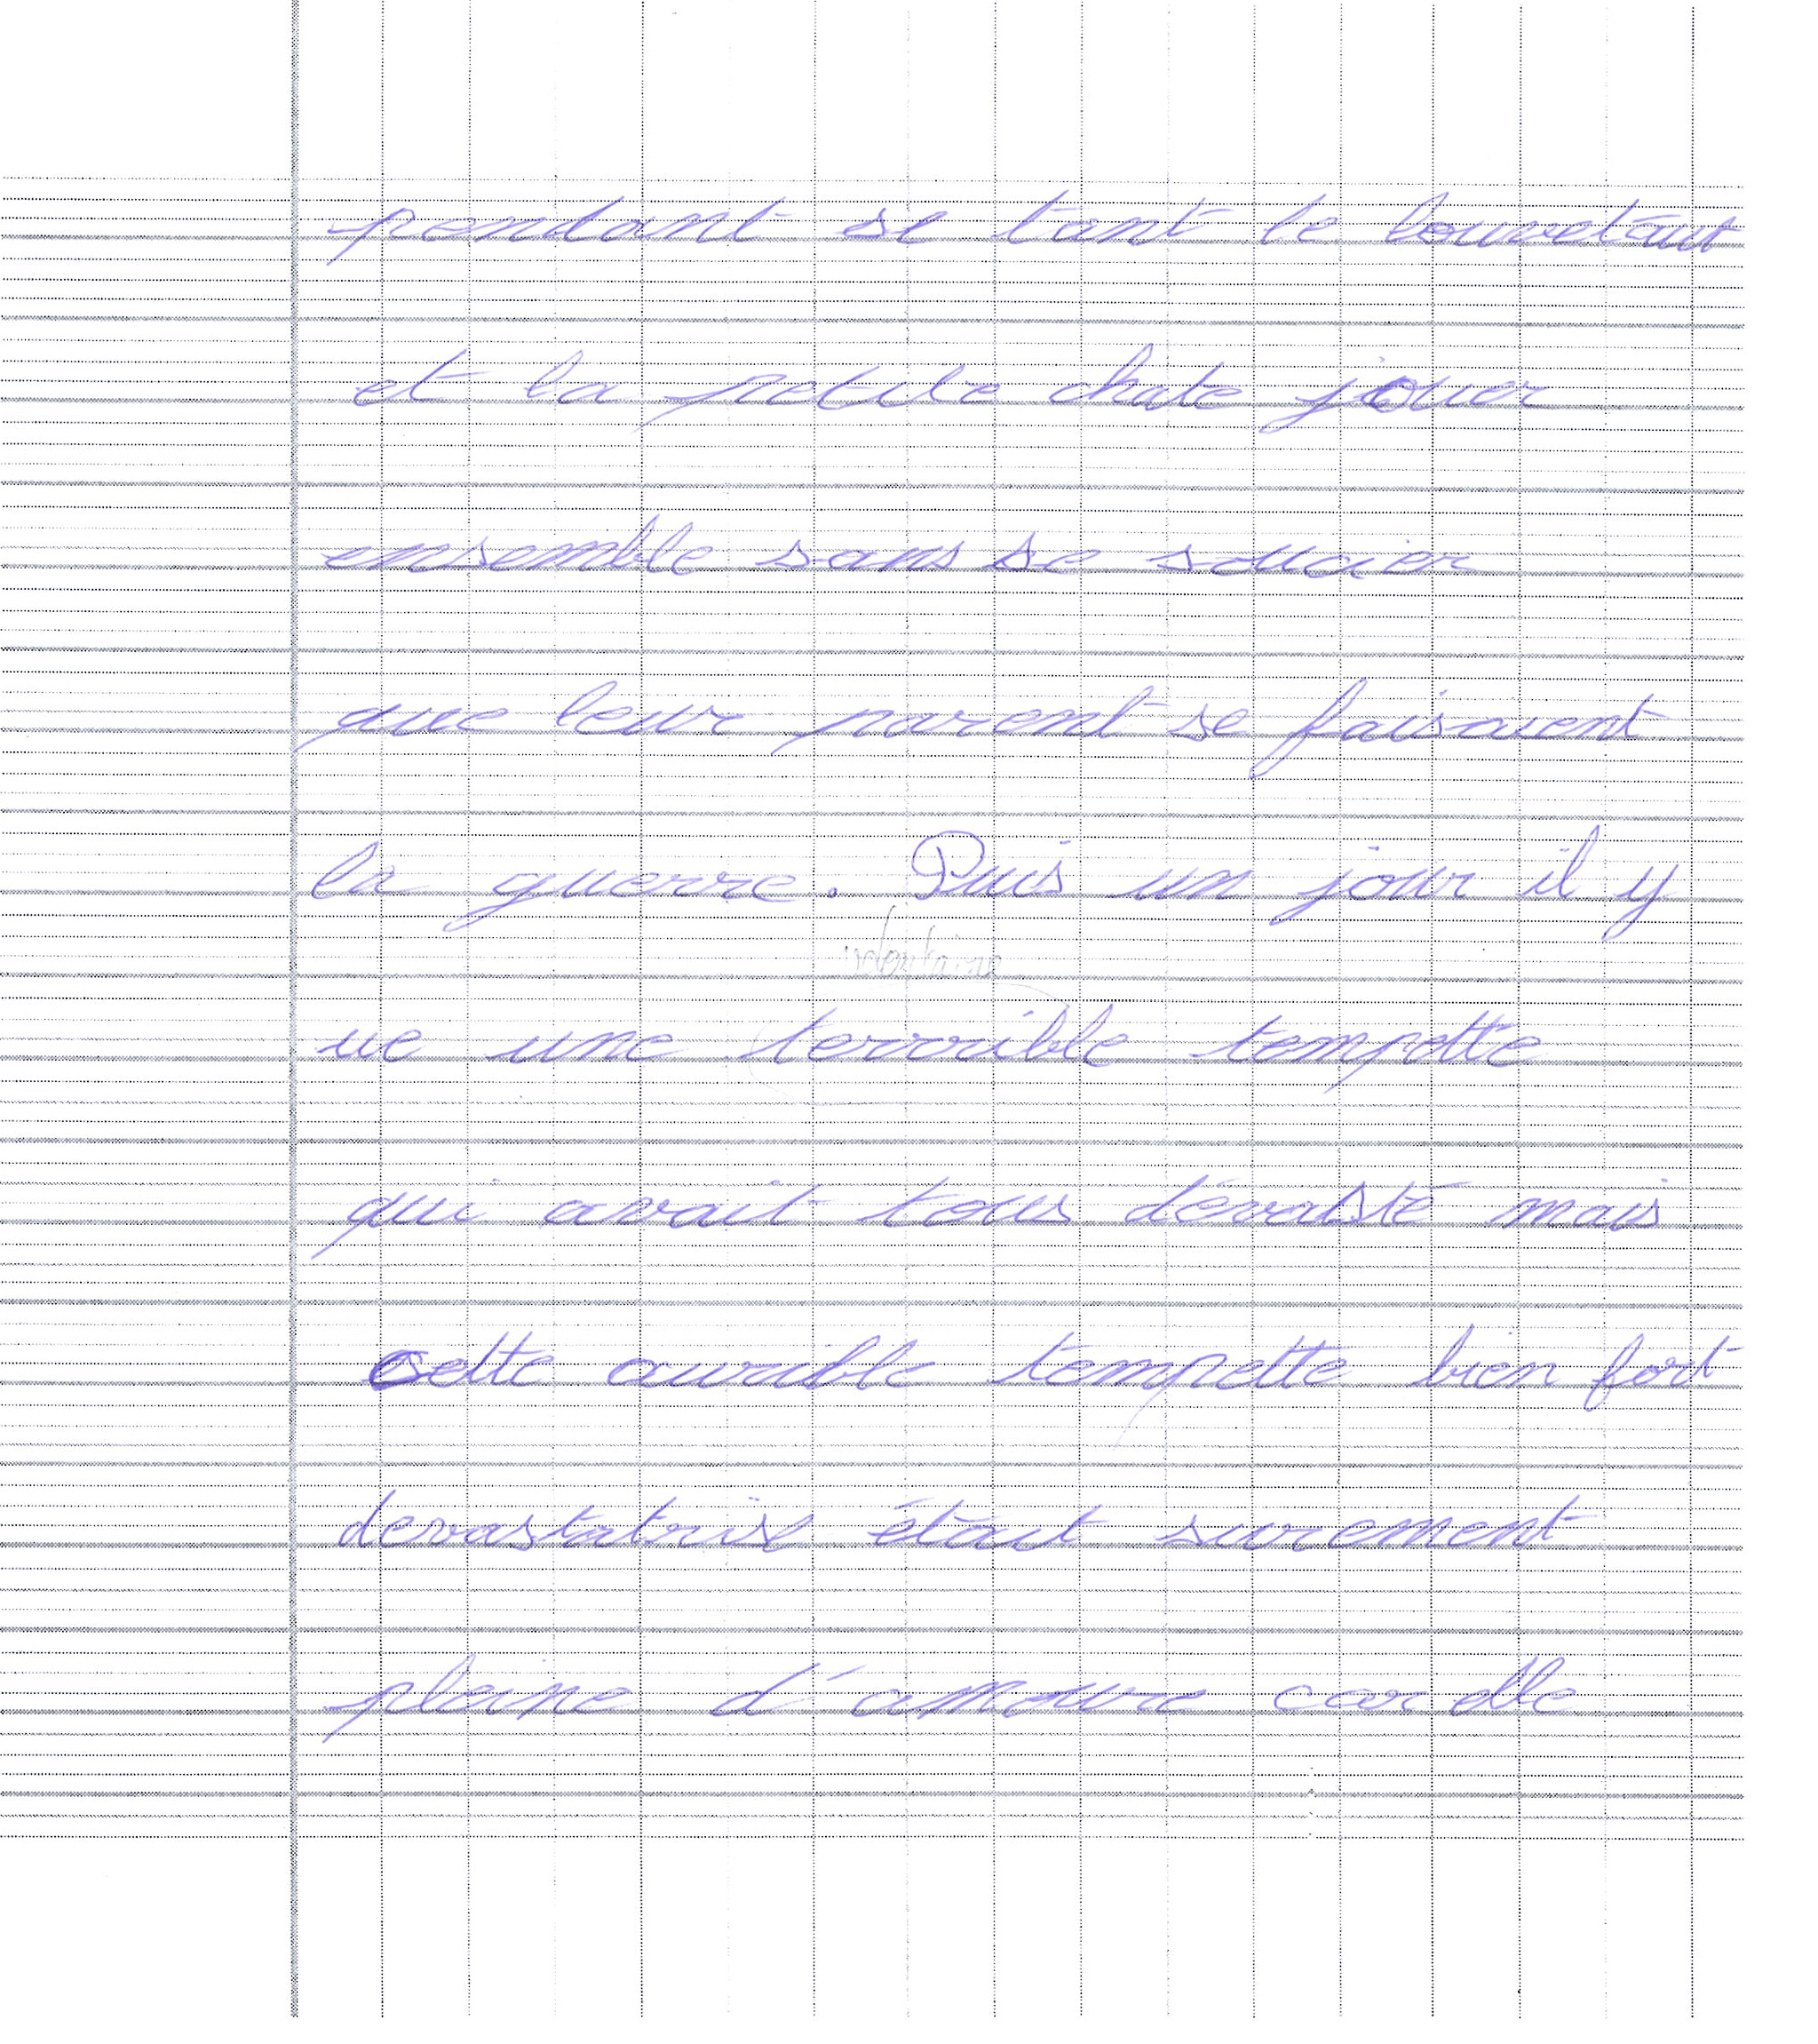 pendant se tant le louvetaut
et la petite chate jouer
ensemble sans se soucier
que leur parent se faisaient
la guerre. Puis un jour il y
ue une terrible tempette
qui avait tous dévalsté mais
cette aurible tempette bien fort
devastatrise était surement
pleine d'amoure car elle